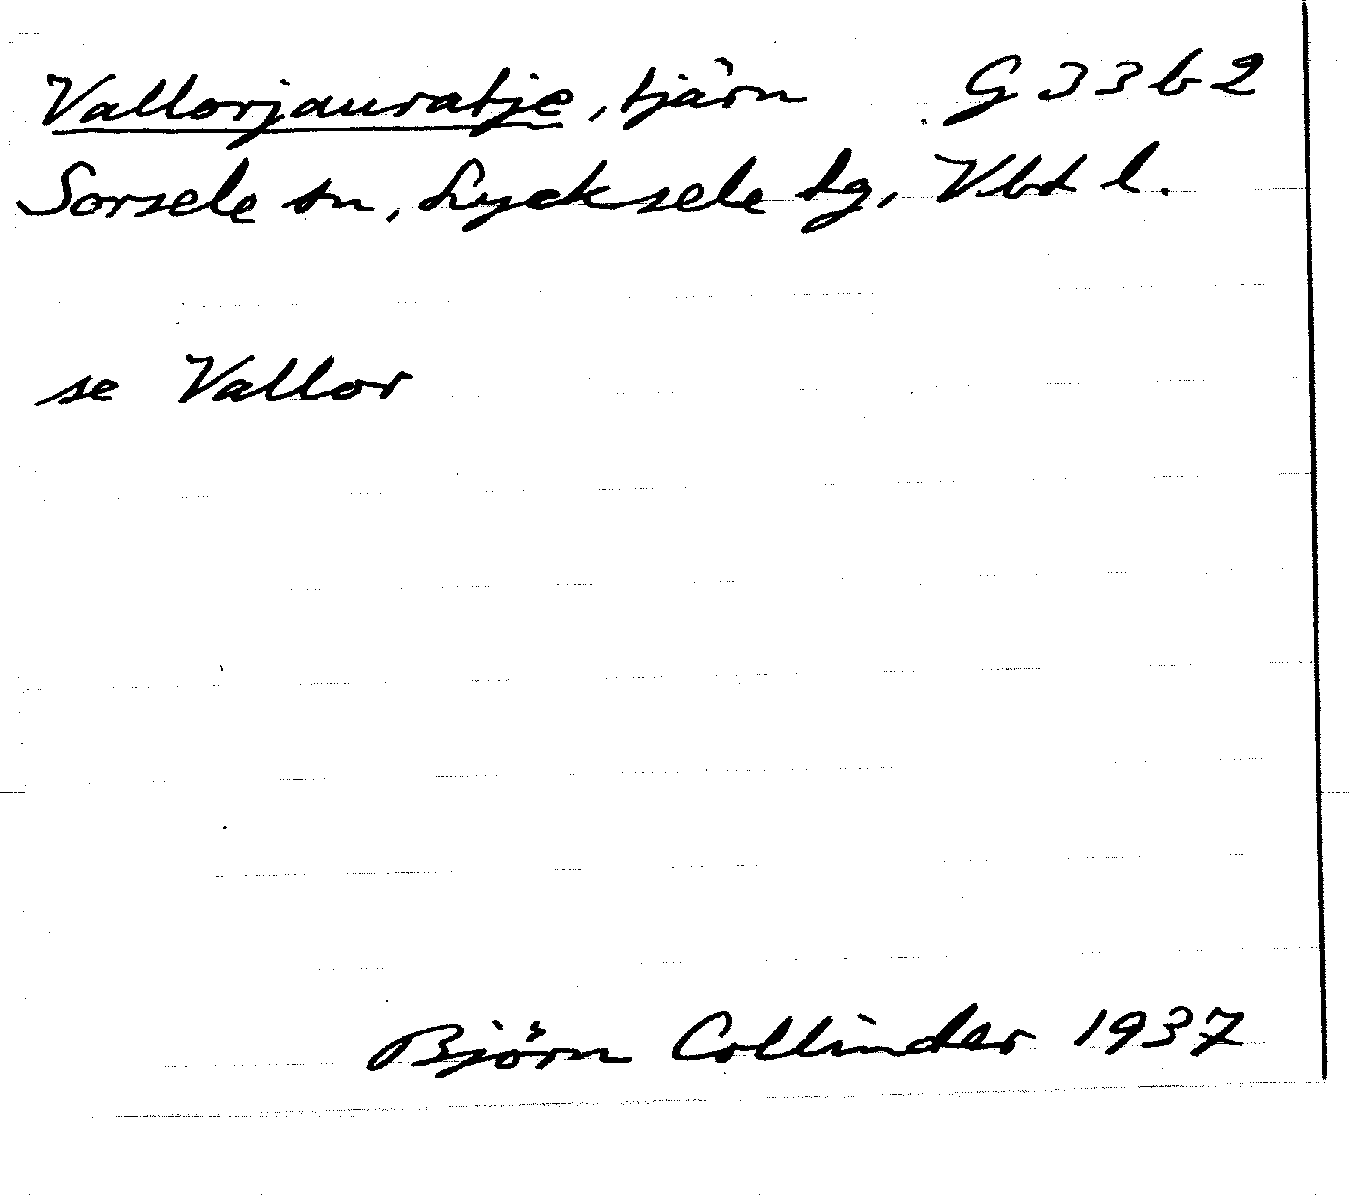 Vallorjauratje, tjärn G 33 b 2
Sorsele sn, Lycksele lg, Vbt l.
se Vallor
Björn Collinder 1937